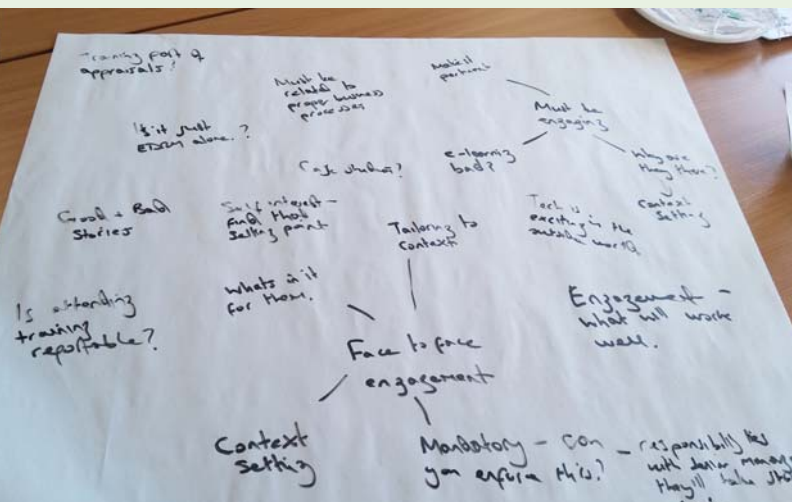 Training part of
appraisals?
Must be
related to
proper business
processes
Make it
pertinent
Must be
engaging
Is it just
EDRM alone?
Case studies?
e-learning
bad?
Why are
they there?
Context
Setting
Good + Bad
Stories
Self interest -
find that
selling point
Tailoring to
context
Tech is
exciting in the
outside world
Is attending
training
reportable?
whats in it
for them.
Face to face
engagement
Engagement -
what will work
well.
Context
Setting
Mandatory - can
you enforce this?
- responsibility lies
with senior
they'll take